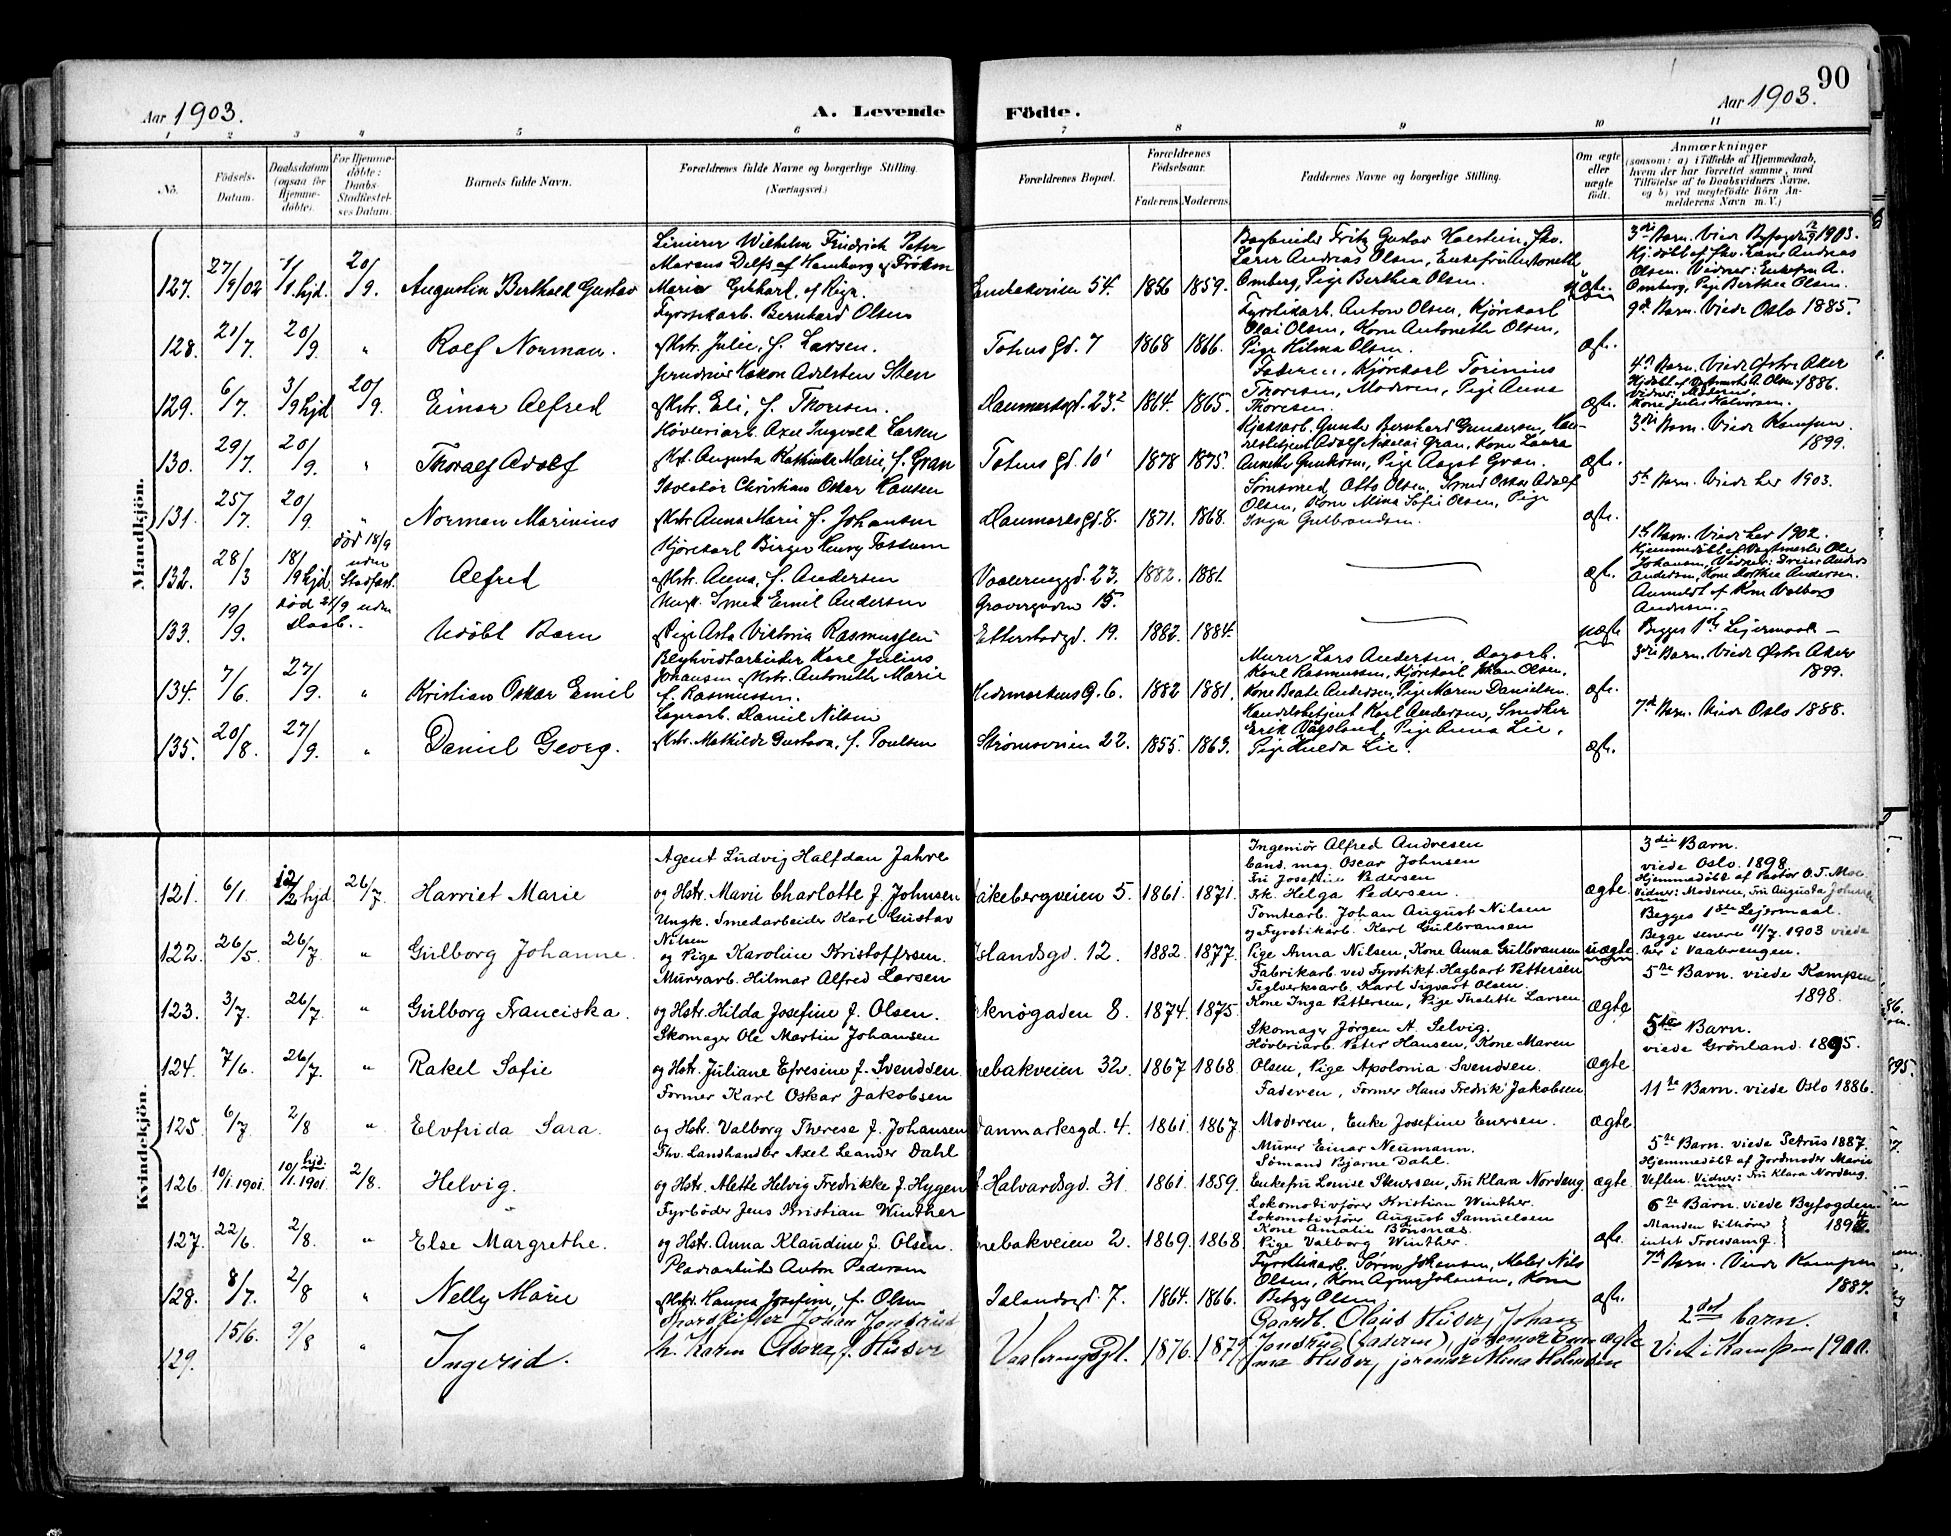 90
Aar 1903.
A. Levende Födte.
Aar 1903.
1 2 3 4 5 6 7 8 9 10 11
No.
Fødsels-Datum.
Daabsdatum (ogsaa for Hjemmedøbte).
For Hjemmedøbte: Daabs-Stadfæstelses Datum.
Barnets fulde Navn.
Forældrenes fulde Navne og borgerlige Stilling. (Næringsvei.)
Forældrenes Bopæl.
Forældrenes Fødselsaar.
Faderens. Moderens.
Faddernes Navne og borgerlige Stilling.
Om ægte eller uægte født.
Anmærkninger
(saasom: a) i Tilfælde af Hjemmedaab, hvem der har forrettet samme, med Tilføielse af to Daabsvidners Navne, og b) ved uegtefødte Börn Anmelderens Navn m. V.)
Mandkjön.
127. 27/9/02 20/9. Augustin Berthold Gustav
Wilhelm Friedrich Peter
Marcus Delfs af Hamborg & Frøken
54. 1856 1859.
Bogbinder Fritz Gustav Holstein, Skr.
Lærer Andreas Olsen, Enkefru Antonette
Omberg, Pige Berthea Olsen.
3die Barn. Viede Byfogden 1903.
Olsen. Vidner: Enkefru A.
Omberg, Pige Berthea Olsen.
128. 21/7. 20/9. " Rolf Norman.
Fyrstikarb. Bernhard Olsen
& Hstr. Julie, f. Larsen.
Totens Gd. 7 1868 1866.
Fyrstikarb. Anton Olsen, Kjørekarl
Olai Olsen, Kone Antonette Olsen,
Pige Hilma Olsen.
ægte.
9de Barn. Viede Oslo 1885.
129. 6/7. 3/9 hjd 20/9. Einar Alfred
Jerndreier Hakon Adelsten Sten
& Hstr. Eli, f. Thoresen.
Danmarksgd. 23.2 1864. 1865.
Faderen, Kjørekarl
Thoresen, Moderen, Pige Anna
Thoresen.
ægte.
4de Barn. Viede Østre Aker
1886.
130. 29/7. 20/9. " Thoralf Adolf
Høvleriarb. Axel Ingvald Larsen
& Hst. Augusta Kathinka Marie, f. Gran
Totens Gd. 10 1878 1875.
Gunder Bernhard Gundersen,
Adolf Nikolai Gran, Kone Laura
Annette Gundersen, Pige Aagot Gran.
ægte.
3die Barn. Viede Kampen.
1899.
131. 25/7. 20/9. " Norman Marinius
Christian Oskar Hansen
& Hstr. Anna Marie f. Johansen
Danmarks Gd. 8. 1871. 1868.
Sømsmed Otto Olsen, Smed Oskar Adolf
Olsen, Kone Mina Sofie Olsen, Pige
Inga Gulbrandsen.
ægte.
5te Barn. Viede her 1903.
132. 28/3 18/9 hjd død 18/9 uden Stadfæst. Alfred
Kjørekarl Birger Henry Fossum
& Hstr. Anna, f. Andersen
Vaalerenggd. 23. 1882. 1881.
ægte.
1ste Barn. Viede her 1902.
Hjemmedøbt af Vagtmester Ole
Johansen, Vidner: Dreier Anders
Andersen, Kone Dorthea Andersen.
133. 19/9. død 21/9 uden Daab. Udøbt Barn
Ungk. Smed Emil Andersen
& Pige Asta Victoria Rasmussen
Gravergaden 15.
Etterstadgd. 19. 1882. 1884.
uægte
Anmeldt af Kone Valborg
Andersen.
Begges 1ste Lejermaal
134. 7/6. 27/9. " Kristian Oskar Emil
Blyhvidtarbeider Karl Julius
Johansen & Hstr. Antonette Marie
f. Rasmussen.
Hedemarkens G. 6. 1882 1881.
Murer Lars Andersen, Dagarb.
Karl Rasmussen, Kjørekarl Johan Olsen,
Kone Beate Andersen, Pige Maren Danielsen.
ægte.
3die Barn. Viede Østre Aker
1899.
135. 20/8. 27/9. " Daniel Georg.
Lagerarb. Daniel Nilsen
& Hstr. Mathilde Gustava, f. Poulsen
Strømsveien 22. 1855. 1863.
Handelsbetjent Karl Andersen, Snedker
Erik Vågsland, Pige Anna Lie,
Pige Hulda Lie.
ægte.
7de Barn. Viede Oslo 1888.
Kvindekjön.
121. 6/1. 12/2 hjd 26/7. Harriet Marie
Agent Ludvig Halfdan Jahre
og Hstr. Marie Charlotte f. Johnsen
akebergveien 5. 1861. 1871.
Ingeniør Alfred Andresen
Cand. mag. Oscar Johnsen
Fru Josefine Pedersen
Frk. Helga Pedersen.
ægte.
3die Barn.
viede Oslo. 1898.
Hjemmedøbt af Pastor O. T. Moe
Vidner: Moderen, Fru Augusta Johnsen
122. 26/5. 26/7. " Gulborg Johanne.
Ungk. Smedarbeider Karl Gustav
Nilsen
og Pige Karoline Kristoffersen.
Islandsgd. 12. 1882. 1877.
Tomtearb. Johan August Nilsen
og Fyrstikarb. Karl Gulbransen
Pige Anna Nilsen, Kone Anna Gulbransen
uægte
Begges 1ste Lejermaal.
Begge senere 11/7 1903 viede
her i Vaalerengen.
123. 3/7. 26/7. " Gulborg Franciska.
Murarb. Hilmar Alfred Larsen
og Hstr. Hilda Josefine f. Olsen.
knøgaden 8. 1874. 1875.
Fabrikarb. ved Fyrstikf. Hagbart Pettersen
Teglverksarb. Karl Sigvart Olsen.
Kone Inga Pettersen, Pige Thalette Larsen
ægte
5te Barn. viede Kampen
1898.
124. 7/6. 26/7. " Rakel Sofie
Skomager Ole Martin Johansen
og Hstr. Juliane Efresine f. Svendsen.
nebakveien 32. 1867 1868.
Skomager Jørgen A. Selvig.
Høvleriarb. Peter Hansen, Kone Maren
Olsen, Pige Apolonia Svendsen.
ægte
5te Barn.
viede Grønland. 1895.
125. 6/7. 2/8 " Elvfrida Sara.
Former Karl Oskar Jakobsen
og Hstr. Valborg Therese f. Johansen
Danmarksgd. 4. 1861. 1867.
Faderen, Former Hans Fredrik Jakobsen
Moderen, Enke Josefine Enersen.
ægte
11te Barn. viede Oslo 1886.
126. 10/1.1901. 10/1.1901. hjd. 2/8. Helvig.
Fhv. Landhandler Axel Leander Dahl
og Hstr. Alette Helvig Fredrikke f. Hygen
St. Halvardsgd. 31. 1861. 1859.
Murer Einar Neumann.
Sømand Bjarne Dahl.
Enkefru Louise Skersen, Fru Klara Nordeng.
ægte
5te Barn. viede Petrus 1887.
Hjemmedøbt af Jordmoder Marie
Veflen. Vidner: Fru Klara Nordeng.
127. 22/6. 2/8. " Else Margrethe.
Fyrbøder Jens Kristian Winther
og Hstr. Anna Klaudine f. Olsen.
nebakveien 2. 1869. 1868
Lokomotivfører Kristian Winther.
Lokomotivfører August Samuelsen
Kone Amalie Bonsnæs.
Pige Valborg Winther.
ægte.
6te Barn. viede Byfogden
Manden tilhører
intet Troessamf. 1894.
128. 8/7. 2/8 " Nelly Marie
Pladsarbeider Anton Pedersen
& Hstr. Hanna Josefine, f. Olsen
Jalandsgd. 7. 1864. 1866.
Fyrstikarb. Søren Johansen, Maler Nils
Olsen, Kone Agnes Johansen, Kone
Betzy Olsen
ægte.
7de Barn. Viede Kampen
1887.
129. 15/6. 9/8 " Ingerid.
Johan Jonsrud
h. Karen f. Huser
Vaalerenggt. 1876. 1879
Gaardb. Olaus Huser, Johan
Jonsrud (faderen),
Huser, Mina Holmsen
ægte
2det barn.
Viet i Kampen 1900.